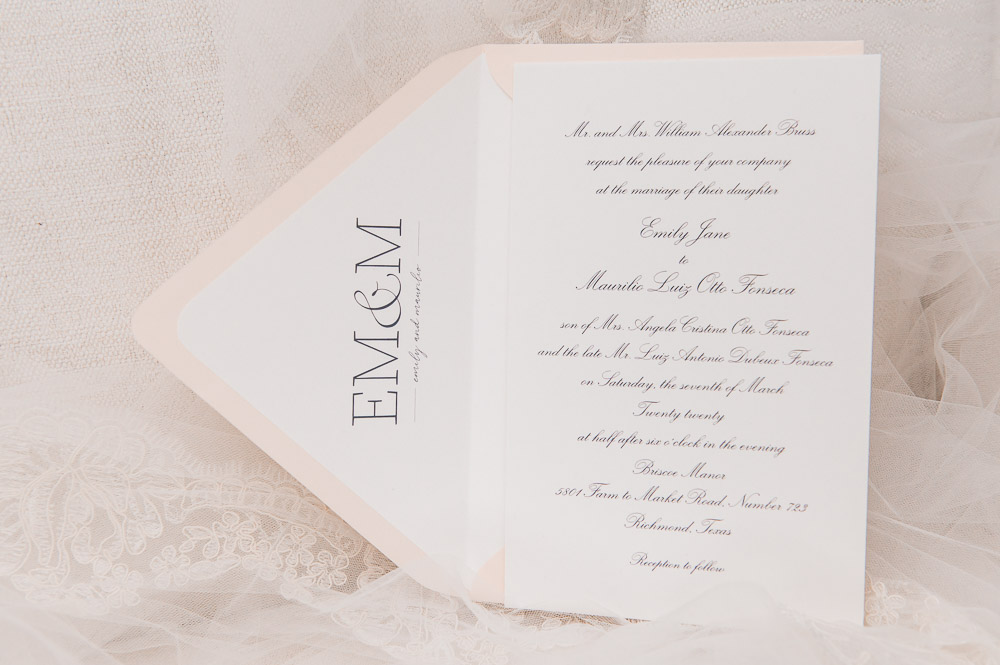 EM&M
emily and maurilio
Mr. and Mrs. William Alexander Bruss
request the pleasure of your company
at the marriage of their daughter
Emily Jane
to
Maurilio Luiz Otto Fonseca
son of Mrs. Angela Cristina Otto Fonseca
and the late Mr. Luiz Antonio Dubeux Fonseca
on Saturday, the seventh of March
Twenty twenty
at half after six o'clock in the evening
Briscoe Manor
5801 Farm to Market Road, Number 723
Richmond, Texas
Reception to follow